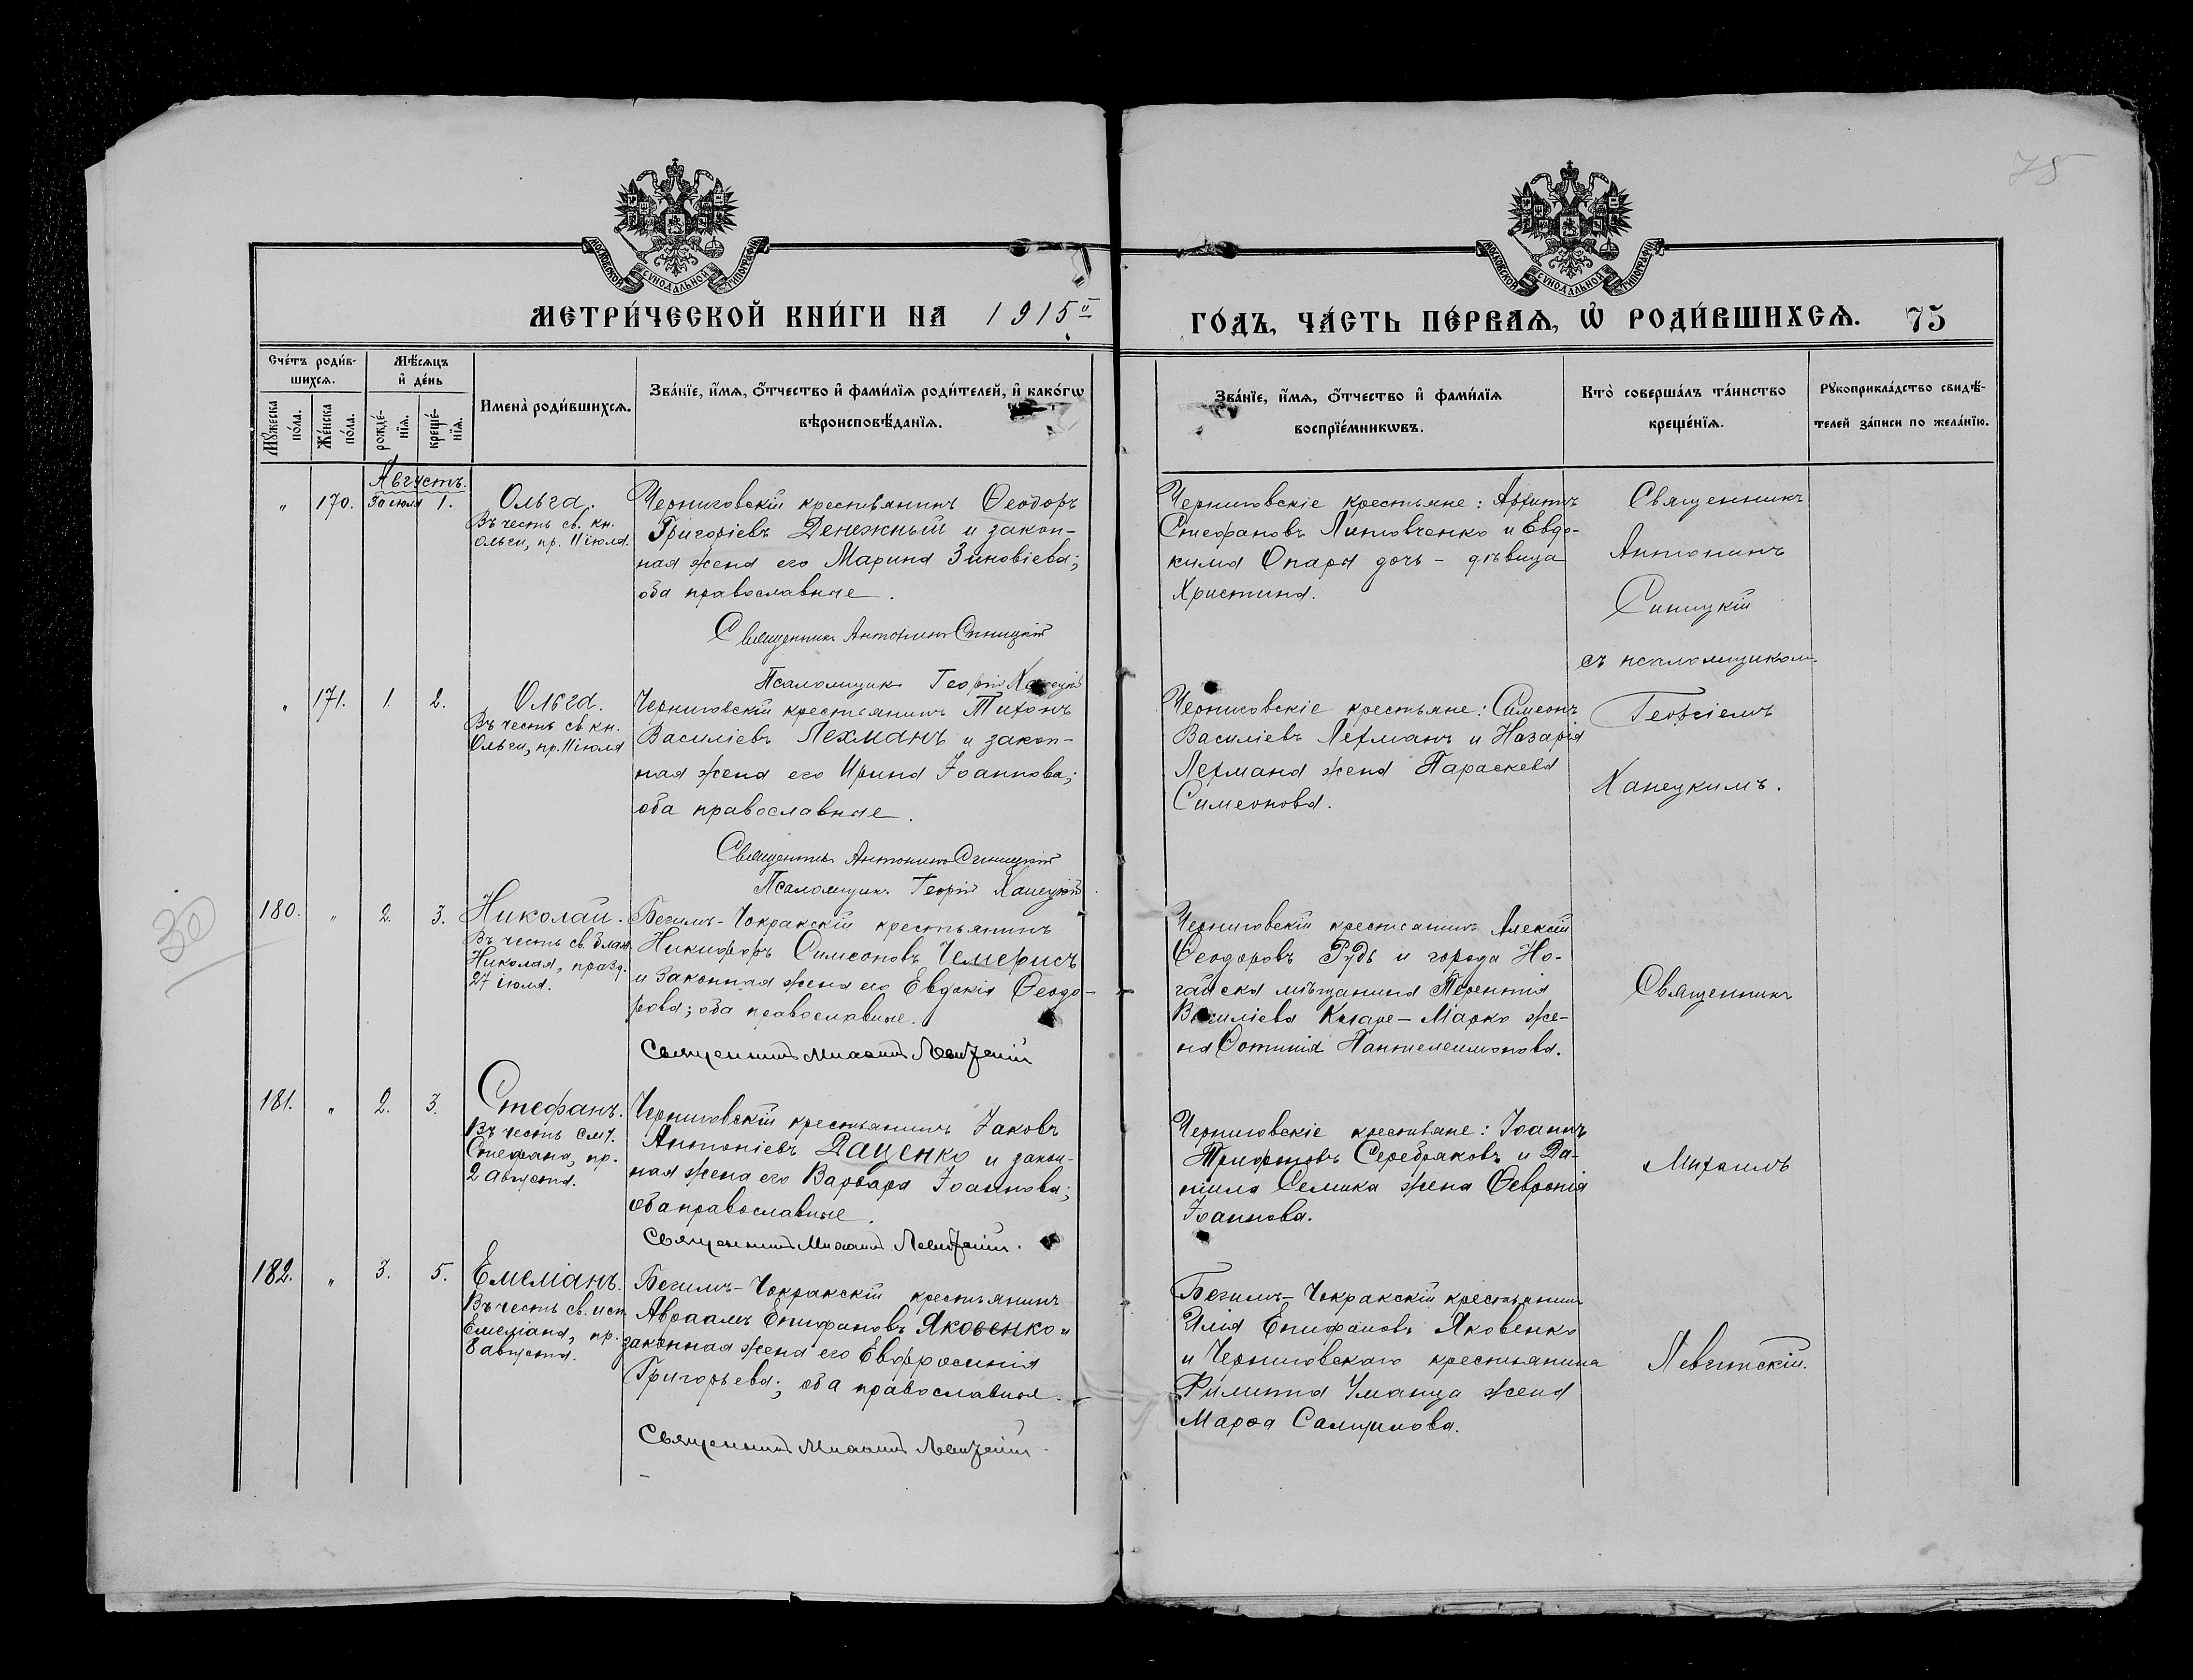 75
МОСКОВСКОЙ СѴНОДАЛЬНОЙ ТИПОГРАФІИ
МОСКОВСКОЙ СѴНОДАЛЬНОЙ ТИПОГРАФІИ
МЕТРИ́ЧЕСКОЙ КНИ́ГИ НА 1915й
ГО́ДЪ, ЧА́СТЬ ПЕ́РВАѦ, Ѡ РОДИ́ВШИХСѦ. 75
Сче́тъ роди́в-
шихсѧ.
Мѣ́сѧцъ
и҆ де́нь
Мꙋ́жеска
по́ла.
Же́нска
по́ла.
рожде́-
нїѧ.
креще́-
нїѧ.
Имена̀ роди́вшихсѧ.
Зва́нїе, и҆́мѧ, ѻ҆́тчество и҆ фами́лїѧ роди́телей, и҆ како́гѡ
вѣроисповѣ́данїѧ.
Зва́нїе, и҆́мѧ, ѻ҆́тчество и҆ фами́лїѧ
воспрїе́мникѡвъ.
Кто̀ соверша́лъ та́инство
креще́нїѧ.
Рꙋкоприкла́дство свидѣ́-
телей за́писи по жела́нїю.
Августъ.
" 170. 30 июля 1. Ольга.
Въ честь св. кн.
Ольги, пр. 11 іюля.
Черниговскій крестьянинъ Ѳеодоръ
Григоріевъ Денежный и закон-
ная жена его Марина Зиновіева;
оба православные.
Священник Антонин Синицкій
Псаломщик Георгій Ханецкій
Черниговскіе крестьяне: Архипъ
Стефановъ Литовченко и Евдо-
кима Опары дочь - дѣвица
Христина.
Священникъ
Антонинъ
Синицкій
съ псаломщиком
Георгіемъ
Ханецкимъ.
" 171. 1. 2. Ольга.
Въ честь св. кн.
Ольги, пр. 11 іюля
Черниговскій крестьянинъ Тихонъ
Василіевъ Лехманъ и закон-
ная жена его Ирина Іоаннова;
оба православные.
Священник Антонин Синицкій
Псаломщик Георгій Ханецкій
Черниговскіе крестьяне: Симеонъ
Василіевъ Лехманъ и Назарія
Лехмана жена Параскева
Симеонова.
30
180. " 2. 3. Николай.
Въ честь св. блаж.
Николая, празд.
27 іюля.
Бегимъ-Чокракскій крестьянинъ
Никифоръ Симеоновъ Чемерисъ
и законная жена его Евдокія Ѳеодо-
рова; оба православные.
Священникъ Михаилъ Левитскій
Черниговскій крестьянинъ Алексій
Ѳеодоровъ Рудь и города Но-
гайска мѣщанина Терентія
Василіева Марко же-
на Фотинія Пантелеимонова.
Священникъ
Михаилъ
Левитскій.
181. " 2. 3. Стефанъ.
Въ честь
Стефана, пр.
2 августа.
Черниговскій крестьянинъ Іаковъ
Антоніевъ Даценко и закон-
ная жена его Варвара Іоаннова;
оба православные.
Священникъ Михаилъ Левитскій.
Черниговскіе крестьяне: Іоаннъ
Трифоновъ Серебряковъ и Да-
ніила Семика жена Ѳевронія
Іоаннова.
182. " 3. 5. Емеліанъ.
Въ честь св. исп.
Емеліана, пр.
8 августа.
Бегимъ-Чокракскій крестьянинъ
Авраамъ Епифановъ Яковенко и
законная жена его Евфросинія
Григорьева; оба православные.
Священникъ Михаилъ Левитскій.
Бегимъ-Чокракскій крестьянинъ
Илія Епифановъ Яковенко
и Черниговскаго крестьянина
Филиппа Уманца жена
Марѳа